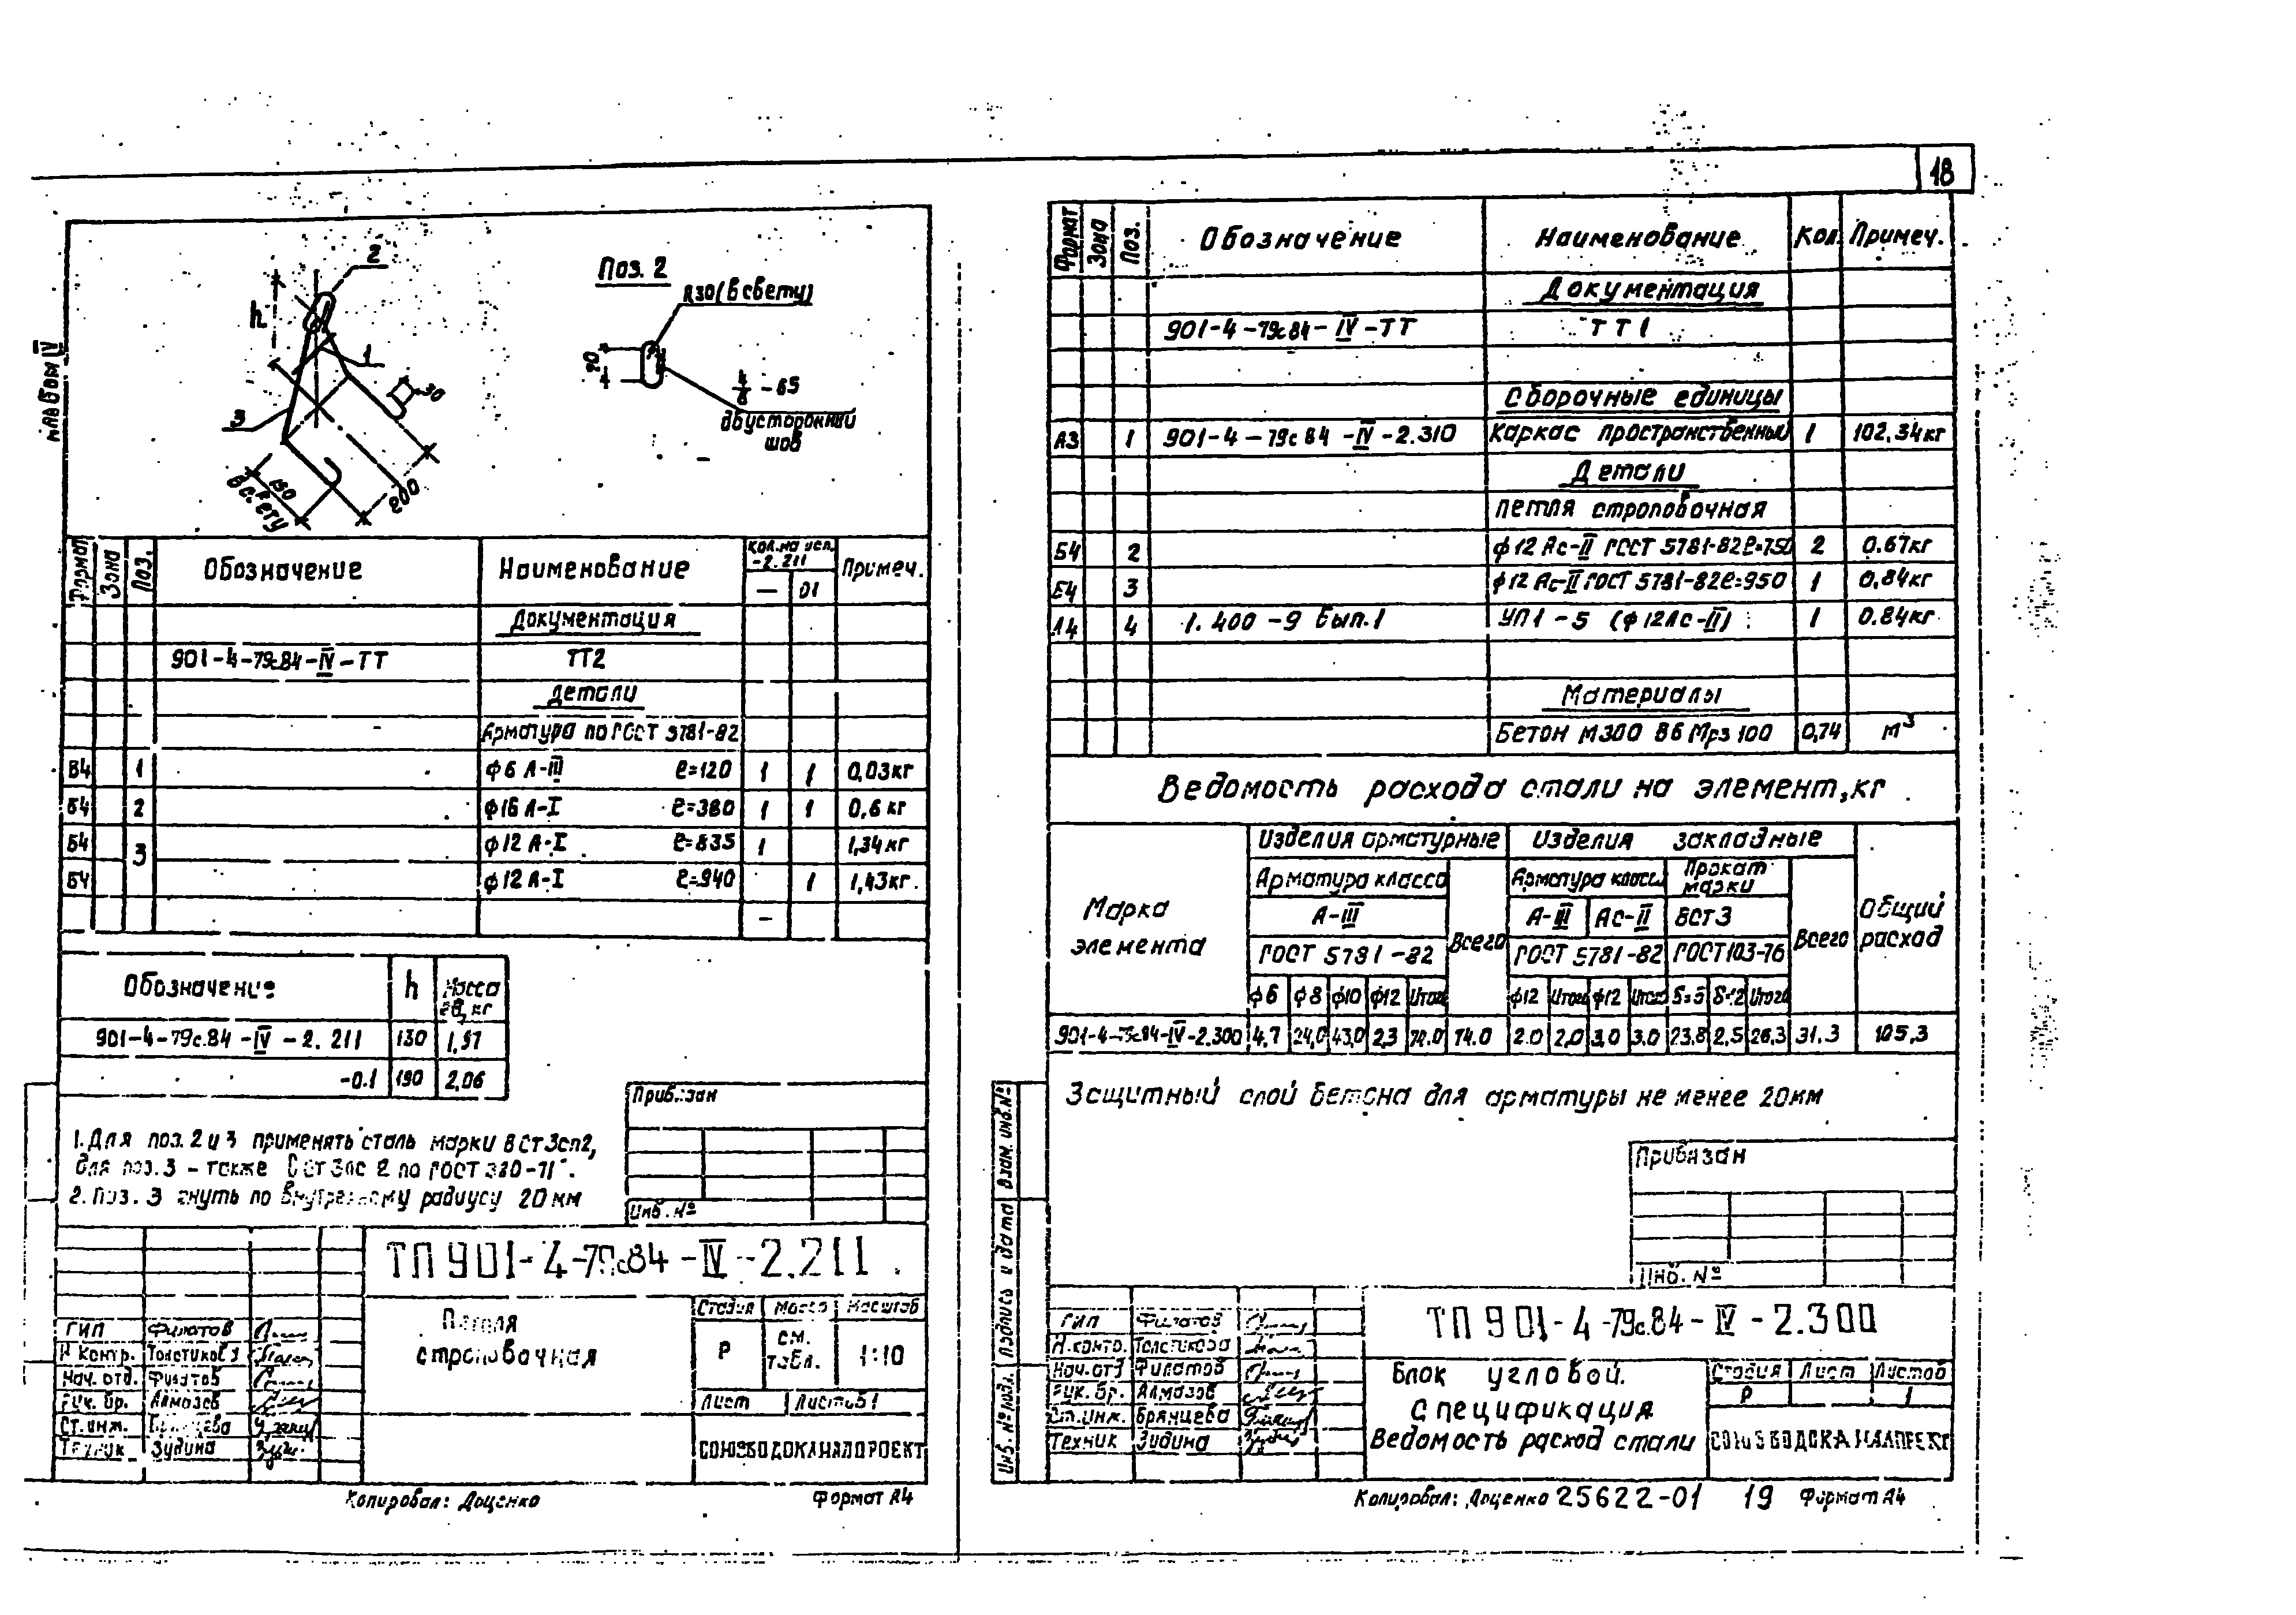 18
Альбом IV
2
h
1
3
30
200
150
в свету
Поз. 2
R30 (в свету)
20
4/6 - 65
двусторонний
шов
Формат
Зона
Поз.
Обозначение
Наименование
Кол. на исп.
-2.211
— 01
Примеч.
Документация
901-4-79с.84-IV-ТТ ТТ2
Детали
Арматура по ГОСТ 5781-82
Б4 1 ф6 А-III ℓ=120 1 1 0,03кг
Б4 2 ф16 А-I ℓ=380 1 1 0,6 кг
Б4 3 ф12 А-I ℓ=835 1 1,34кг
Б4 ф12 А-I ℓ=940 1 1,43кг.
–
Обозначение h Масса ед, кг
901-4-79с.84-IV-2.211 130 1,97
-0.1 190 2,06
Привязан
Инв. №
1. Для поз. 2 и 3 применять сталь марки ВСт3сп2,
для поз. 3 – также ВСт3пс2 по ГОСТ 380-71*.
2. Поз. 3 гнуть по внутреннему радиусу 20 мм
ТП 901-4-79с.84-IV-2.211
Петля
строповочная
Стадия Масса Масштаб
Р см. табл. 1:10
Лист Листов 1
СОЮЗВОДОКАНАЛПРОЕКТ
ГИП Филатов
Н контр. Толстикова
Нач. отд. Филатов
Рук. бр. Алмазов
Ст. инж. Брянцева
Техник Зудина
Копировал: Доценко Формат А4
Формат
Зона
Поз.
Обозначение
Наименование
Кол.
Примеч.
Документация
901-4-79с84-IV-ТТ ТТ1
Сборочные единицы
А3 1 901-4-79с84-IV-2.310 Каркас пространственный 1 102,34кг
Детали
петля строповочная
Б4 2 ф12 Ас-II ГОСТ 5781-82 ℓ=750 2 0.67кг
Б4 3 ф12 Ас-II ГОСТ 5781-82 ℓ=950 1 0,84кг
А4 4 1.400-9 Вып.1 УП1-5 (ф12Ас-II) 1 0.84кг
Материалы
Бетон М300 В6 Мрз 100 0,74 м³
Ведомость расхода стали на элемент, кг
Марка
элемента
Изделия арматурные
Изделия закладные
Общий
расход
Арматура класса
Всего
Арматура класса
Прокат
марки
Всего
А-III А-III Ас-II ВСт3
ГОСТ 5781-82 ГОСТ 5781-82 ГОСТ103-76
ф6 ф8 ф10 ф12 Итого ф12 Итого ф12 Итого Итого
901-4-79с.84-IV-2.300 4,7 24,0 43,0 2,3 74.0 74.0 2.0 2,0 3,0 3.0 23.8 2,5 26,3 31.3 105,3
Защитный слой бетона для арматуры не менее 20мм
Привязан
Инв. №
Взам. инв. №
Подпись и дата
Инв. № подл.
ТП 901-4-79с.84-IV-2.300
Блок угловой.
Спецификация
Ведомость расход стали
Стадия Лист Листов
Р 1
СОЮЗВОДОКАНАЛПРОЕКТ
ГИП Филатов
Н.контр. Толстикова
Нач.отд Филатов
Рук. бр. Алмазов
Ст.инж. Брянцева
Техник Зудина
Копировал: Доценко 25622-01 19 Формат А4